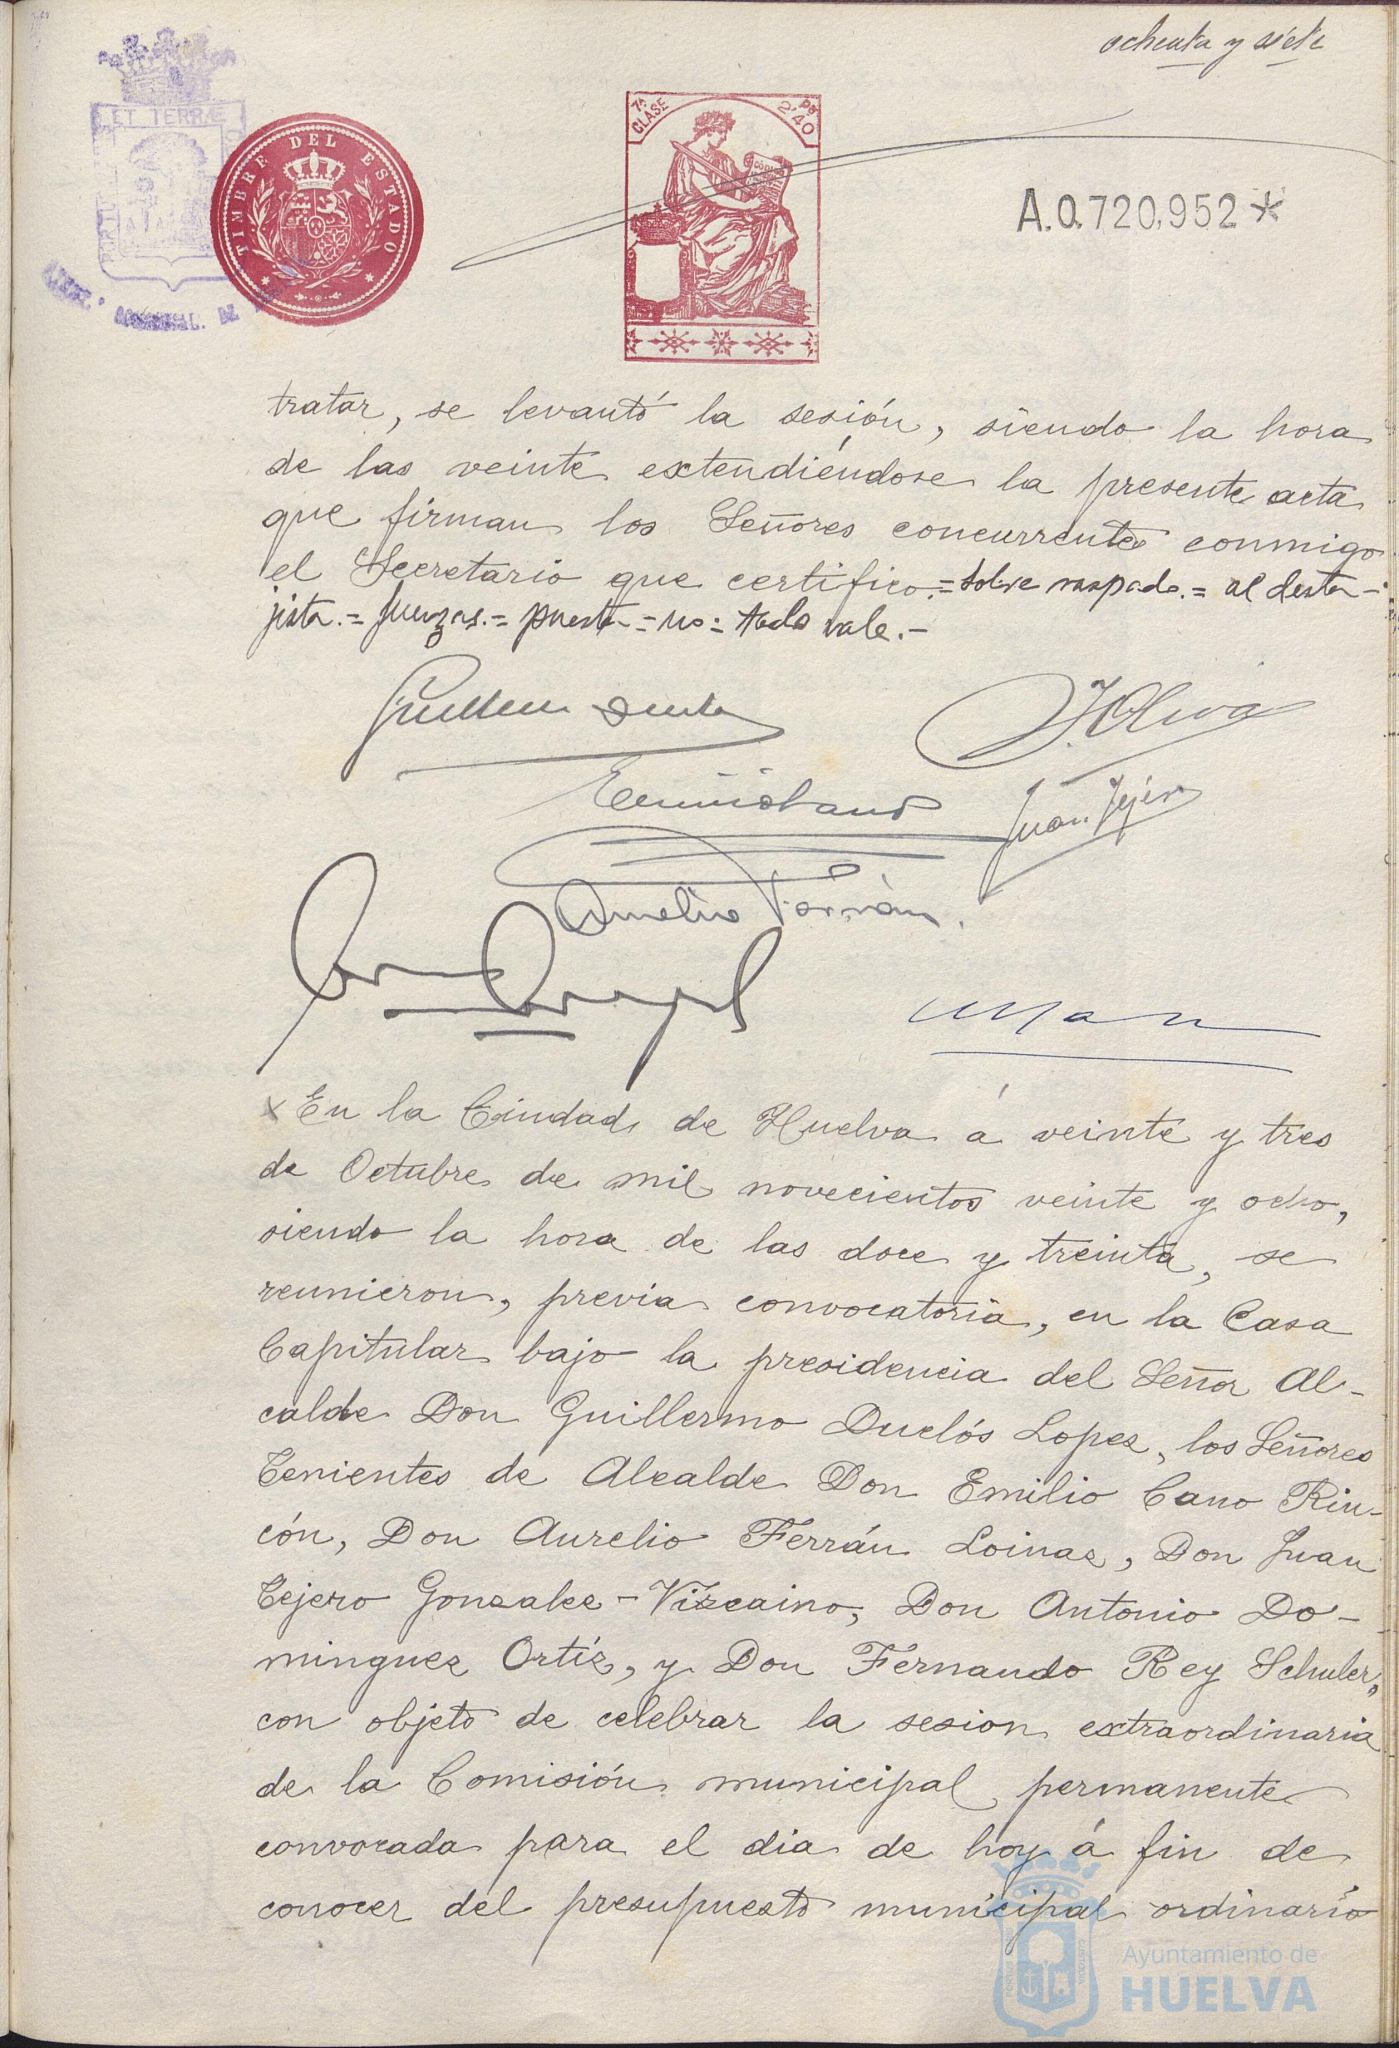 ochenta y siete
ET TERRÆ
TIMBRE DEL ESTADO
7ª CLASE
2'40 pts
A.0.720,952*
DE
tratar, se levantó la sesión, siendo la hora
de las veinte extendiéndose la presente acta
que firman los Señores concurrentes conmigo
el Secretario que certifico.=Sobre raspado.= al desta-
jista.= fuerzas.= puesta = no = todo vale.-
J. Oliva
Juan Tejero
Aurelio Ferrán.
En la Ciudad de Huelva á veinte y tres
de Octubre de mil novecientos veinte y ocho,
siendo la hora de las doce y treinta, se
reunieron, previa convocatoria, en la Casa
Capitular bajo la presidencia del Señor Al-
calde Don Guillermo Duclós Lopez, los Señores
Tenientes de Alcalde Don Emilio Cano Rin-
cón, Don Aurelio Ferrán Loinaz, Don Juan
Tejero Gonzalez-Vizcaino, Don Antonio Do-
minguez Ortíz, y Don Fernando Rey Schuler,
con objeto de celebrar la sesion extraordinaria
de la Comisión municipal permanente
convocada para el dia de hoy á fin de
conocer del presupuesto municipal ordinario
Ayuntamiento de
HUELVA